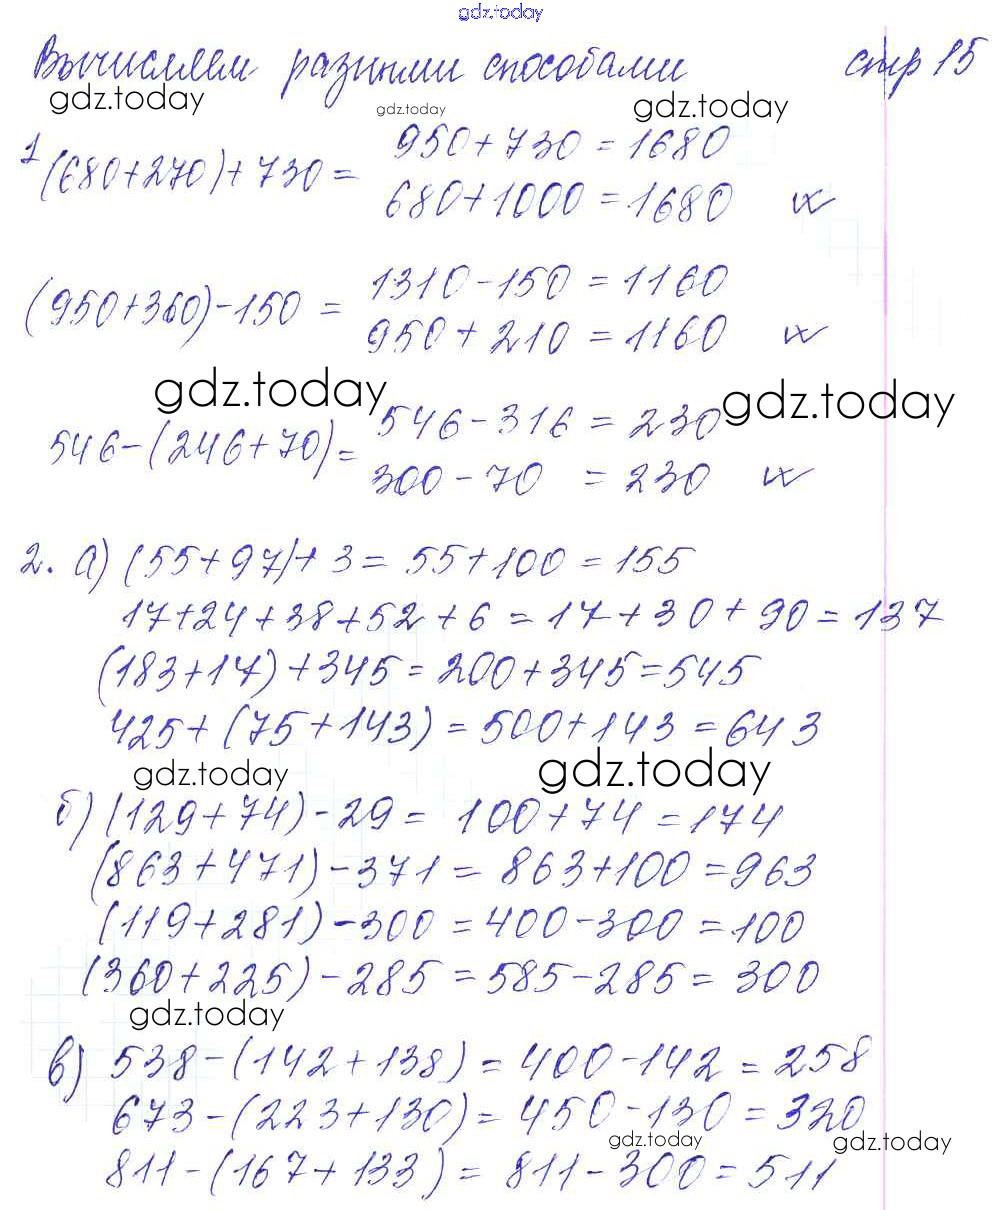 gdz.today
Вычисляем разными способами стр 15
gdz.today gdz.today gdz.today
1 (680+270)+730= 950+730=1680
680+1000=1680
(950+360)-150= 1310-150=1160
950+210=1160
gdz.today gdz.today
546-(246+70)= 546-316=230
300-70=230
2. а) (55+97)+3=55+100=155
17+24+38+52+6=17+30+90=137
(183+17)+345=200+345=545
425+(75+143)=500+143=643
gdz.today gdz.today
б) (129+74)-29=100+74=174
(863+471)-371=863+100=963
(119+281)-300=400-300=100
(360+225)-285=585-285=300
gdz.today
в) 538-(142+138)=400-142=258
673-(223+130)=450-130=320
gdz.today gdz.today
811-(167+133)=811-300=511